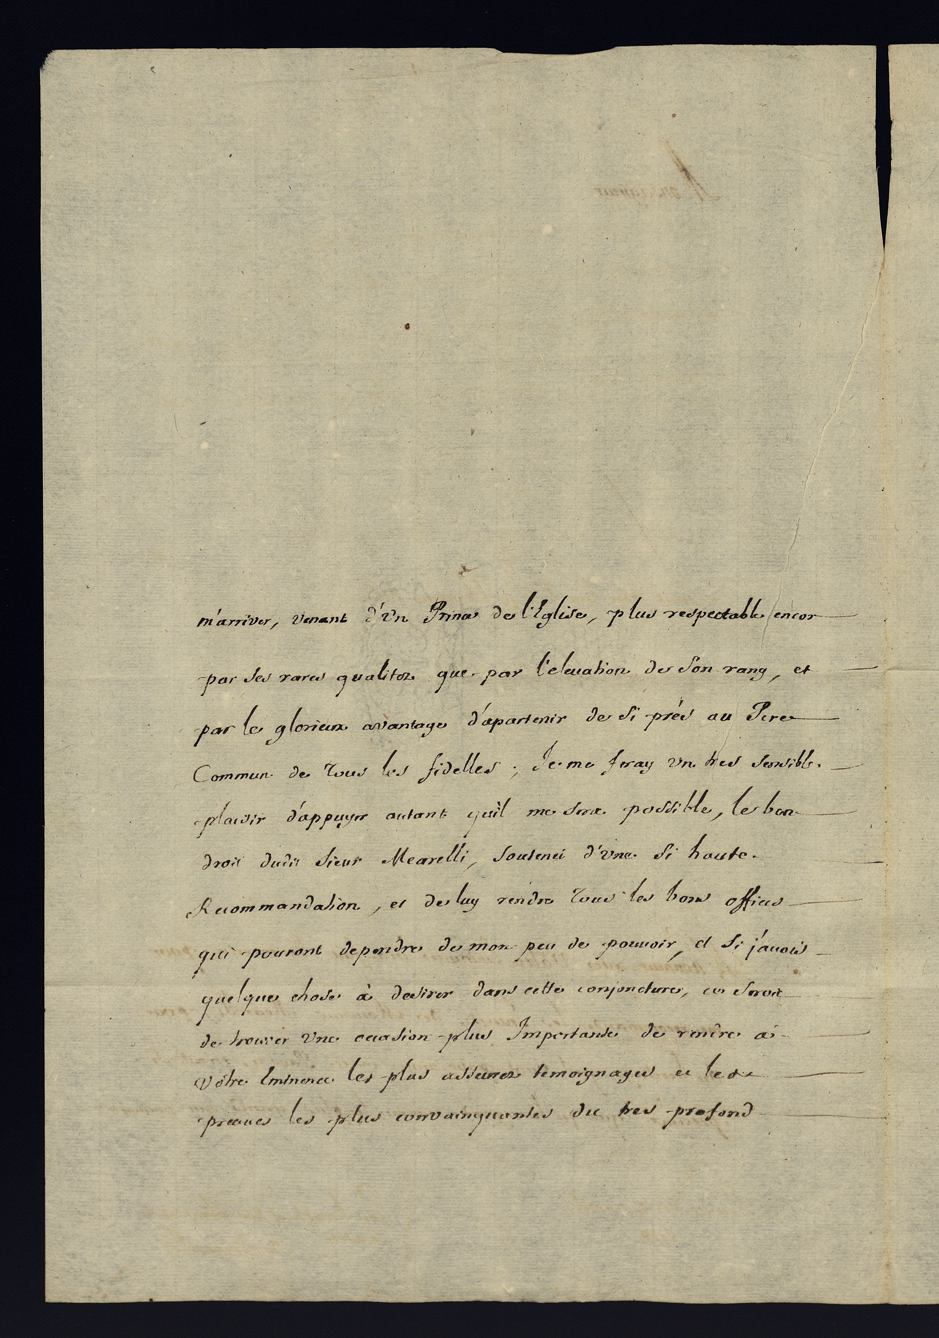 m'arriver, venant d'vn Prince de l'Eglise, plus respectable encor
par ses rares qualitez que par l'eleuation de son rang, et
par le glorieux avantage d'apartenir de si prés au Pere
Commun de tous les fidelles; Je me feray vn tres sensible
plaisir d'appuyer autant quil me sera possible, le bon
droit dudit Sieur Mearelli, soutenü d'vne si haute
Recommandation, et de luy rendre tous les bons offices
qui pouront dependre de mon peu de pouuoir, et si j'auois
quelque chose à desirer dans cette conjoncture, ce seroit
de trouver vne occasion plus Importante de rendre a
vôtre Eminence les plus assurez temoignages et les
preuues les plus convainquantes du tres profond